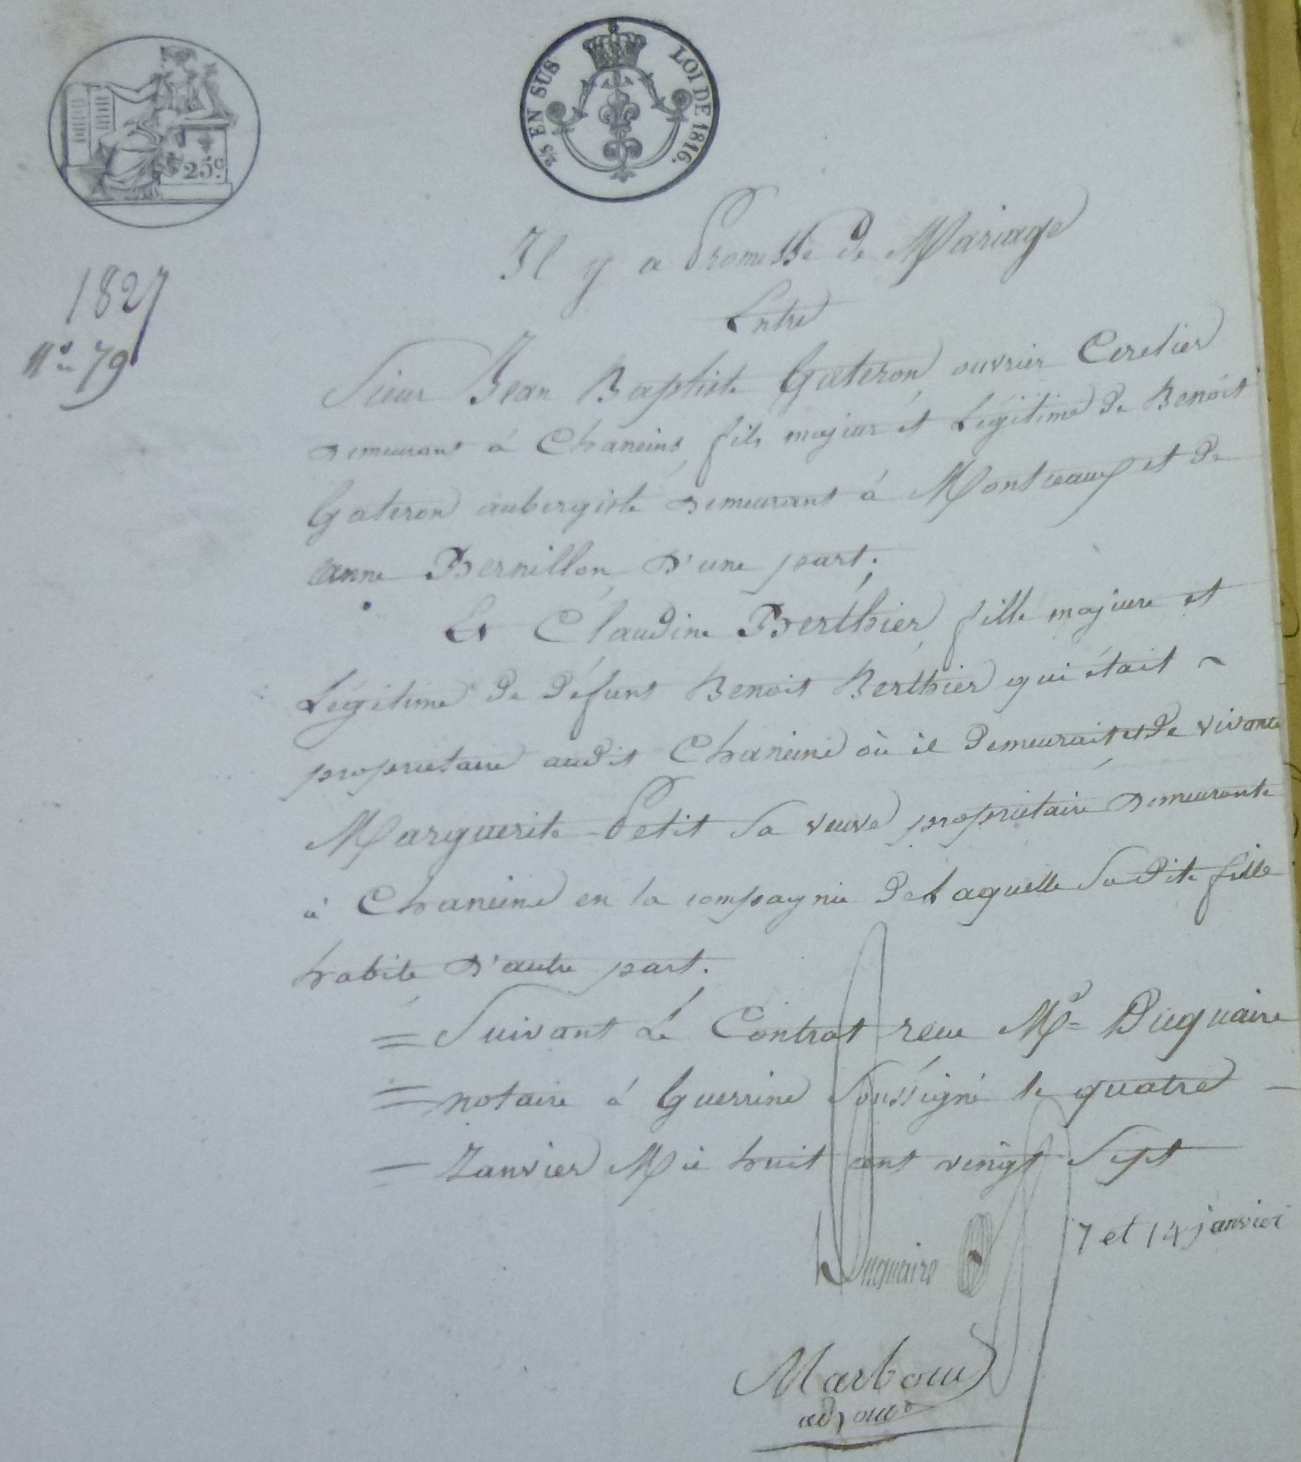 25 EN SUS LOI DE 1816.
25c
Il y a Promesse de Mariage
Entre
1827
No 79
Sieur Jean Baptiste Gateron ouvrier Cerclier
demeurant à Chaneins fils majeur et Légitime de Benoit
Gateron aubergiste demeurant à Montceaux et de
anne Bernillon d'une part.
Et Claudine Berthier fille majeure et
Légitime de défunt Benoit Berthier qui était
proprietaire audit Chaneins où il demeurait et de vivante
Marguerite Petit sa veuve propriétaire demeurante
à Chaneins en la compagnie de Laquelle sa dite fille
habite d'autre part.
Suivant Le Contrat reçu Me Duquaire
notaire à Guerrins soussigné le quatre
Janvier Mil huit cent vingt sept
7 et 14 janvier
Duquaire